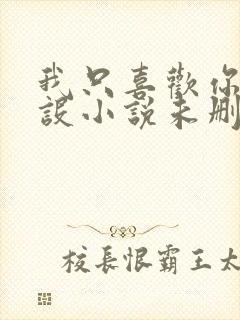 我只喜歡你
設小說未刪
校長恨霸王太